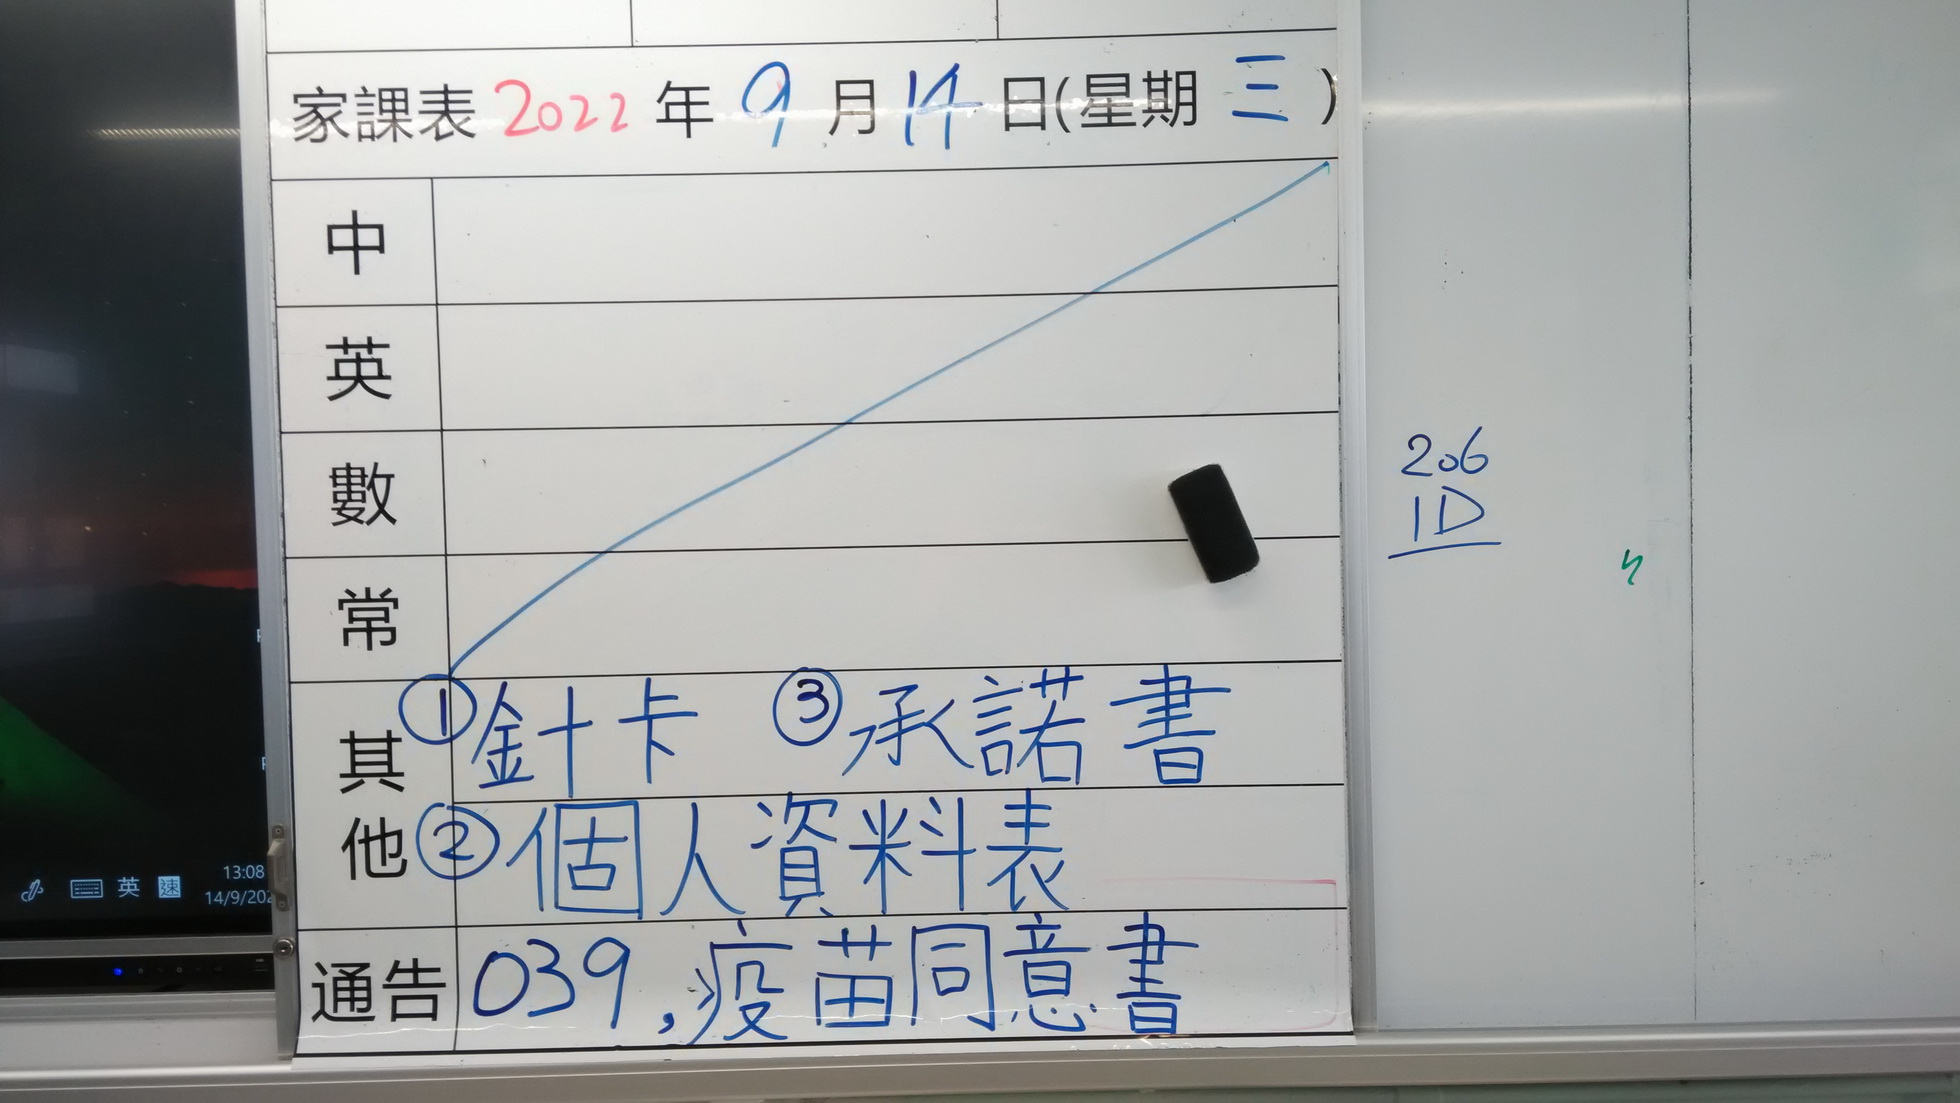 家課表 2022 年 9 月 14 日(星期 三 )
中
英
數
常
其他
① 針卡 ③ 承諾書
② 個人資料表
通告 039,疫苗同意書
206
1D
英 速 13:08
14/9/202